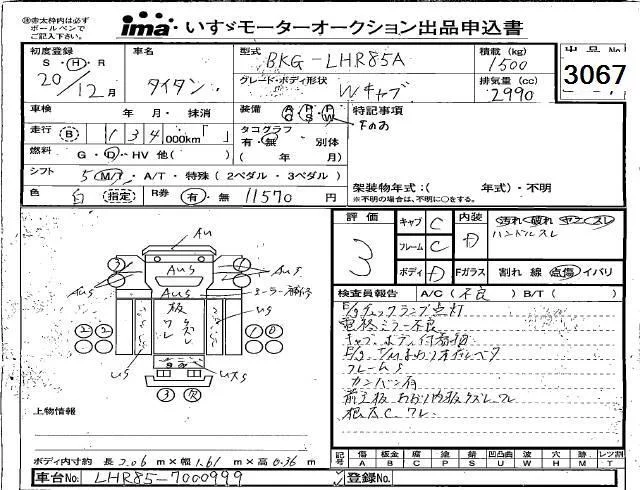 ㊟赤太枠内は必ず
ボールペンで
ご記入下さい。
ima いすゞモーターオークション出品申込書
初度登録 車名 型式 積載 (kg) 出品No
S・H・R タイタン BKG-LHR85A 1500 3067
20/12月 グレード・ボディ形状 Wキャブ 排気量 (cc)
2990
車検 年・月・抹消 装備 AC PS PW 特記事項
走行 B 134,000km「 」 タコグラフ
有・無 別体
燃料 G・D・HV 他( ) ( 年 月)
シフト 5 M/T・A/T・特殊(2ペダル・3ペダル)
架装物年式:( 年式)・不明
色 白 (指定) R券 有・無 11570 円 ※不明の場合は、不明に○をする。
評価 キャブ C 内装 汚れ 破れ ヤニ スレ
3 フレーム C D ハンドルスレ
ボディ D Fガラス 割れ 線 点傷 イバリ
検査員報告 A/C(不良) B/T( )
E/gチェックランプ点灯
電格ミラー不良
フレームS
カンバン有
AU
AUS
AUS
AUS
AUS
US
US
板ワレ
3 欠
上物情報
記号 傷 板金 腐 塗 錆 凹凸曲 波 穴 跡 レンズ割
A B C P S U W H M T
ボディ内寸約 長 2.06 m×幅 1.61 m×高 0.36 m
車台No: LHR85-7000999 登録No: